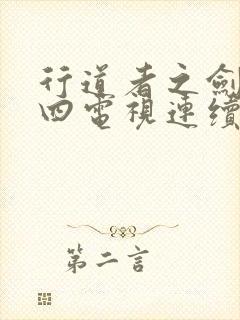 行道者之劍
四電視連續
第二言